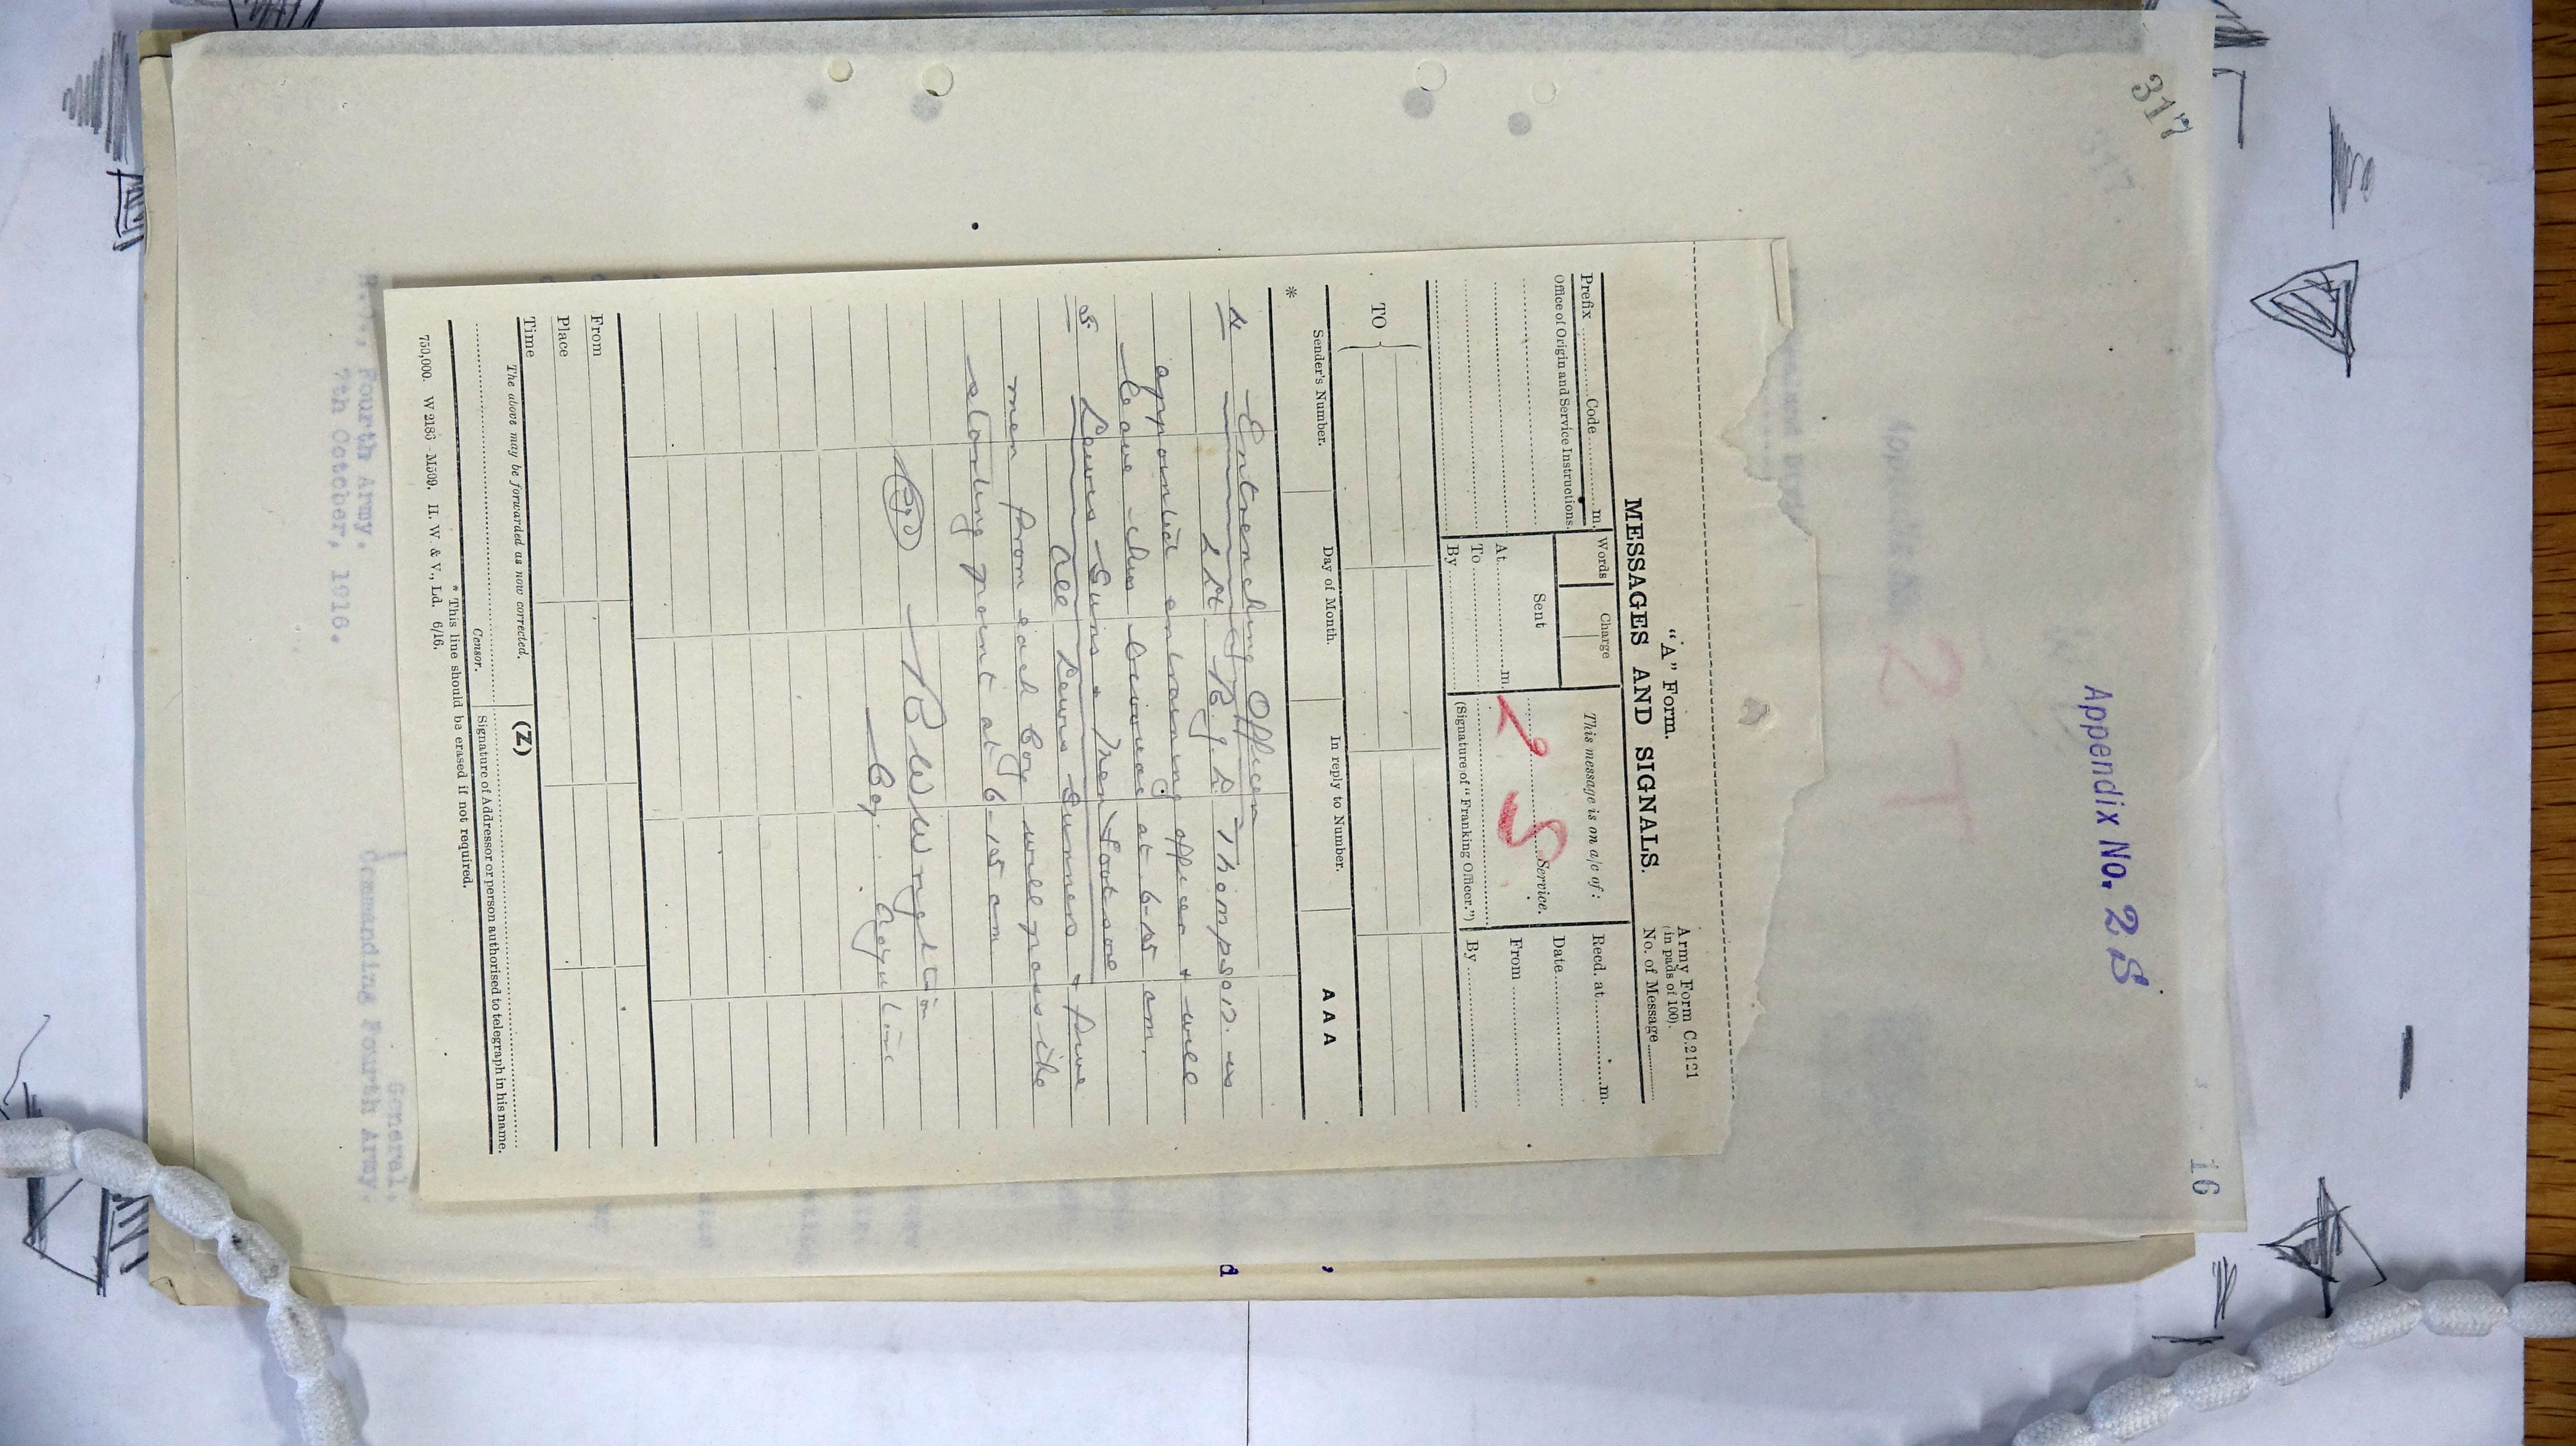 317
Appendix No. 2 S
16
"A" Form.
Army Form C.2121
(in pads of 100).
MESSAGES AND SIGNALS.
No. of Message
Prefix Code m.
Words
Charge
This message is on a/c of:
Recd. at m.
Office of Origin and Service Instructions.
Sent
Service.
Date
At m.
2 S
From
To
By
(Signature of "Franking Officer.")
By
TO
Sender's Number.
Day of Month.
In reply to Number.
A A A
*
4 Entrenching Officer
2 Lt R. J. A. Thompson. is
appointed entraining officer + will
leave this bivouac at 6-15 am.
5 Lewis Guns + Men Footsore
All Lewis Gunners + five
men from each Coy will pass the
starting point at 6-15 am
From
Place
Time
The above may be forwarded as now corrected.
(Z)
Censor.
Signature of Addressor or person authorised to telegraph in his name.
* This line should be erased if not required.
750,000. W 2186—M509. H. W. & V., Ld. 6/16.
Fourth Army.
7th October, 1916.
General.
Commanding Fourth Army.